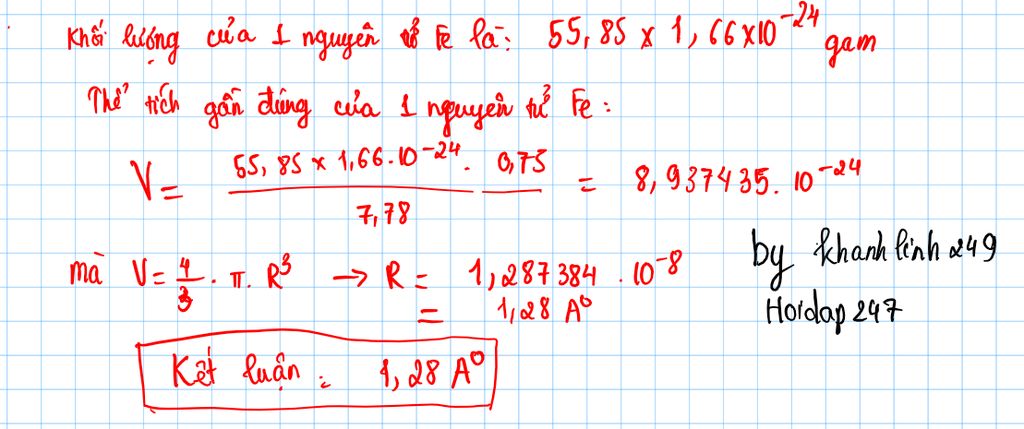 Khối lượng của 1 nguyên tử Fe là: 55,85 x 1,66x10^-24 gam
Thể tích gần đúng của 1 nguyên tử Fe:
V = 55,85 x 1,66.10^-24 . 0,75 / 7,78 = 8,937435. 10^-24
mà V = 4/3 . π. R^3 → R = 1,287384 . 10^-8
= 1,28 A°
by khanhlinh249
Hoidap247
Kết luận : 1,28 A°